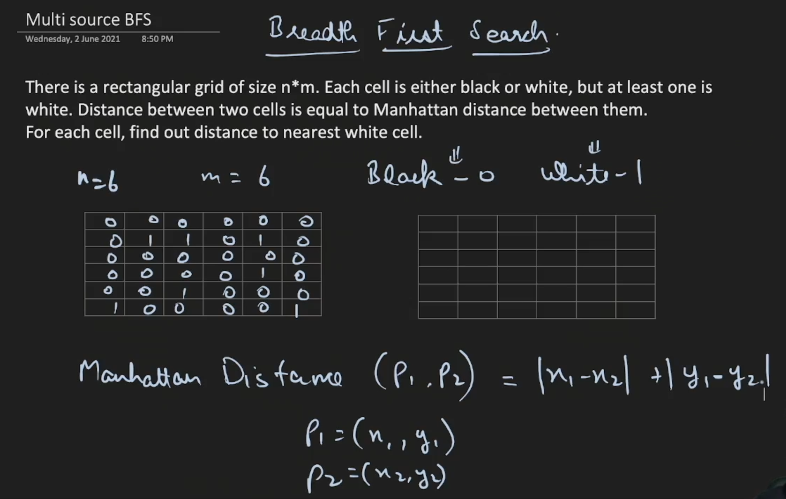 Multi source BFS
Wednesday, 2 June 2021 8:50 PM
Breadth First Search.
There is a rectangular grid of size n*m. Each cell is either black or white, but at least one is
white. Distance between two cells is equal to Manhattan distance between them.
For each cell, find out distance to nearest white cell.
n=6 m = 6 Black - 0 white - 1
0 0 0 0 0 0
0 1 1 0 1 0
0 0 0 0 0 0
0 0 0 0 1 0
0 0 1 0 0 0
1 0 0 0 0 1
Manhattan Distance (P1, P2) = |x1-x2| + |y1-y2|
P1 = (x1, y1)
P2 = (x2, y2)